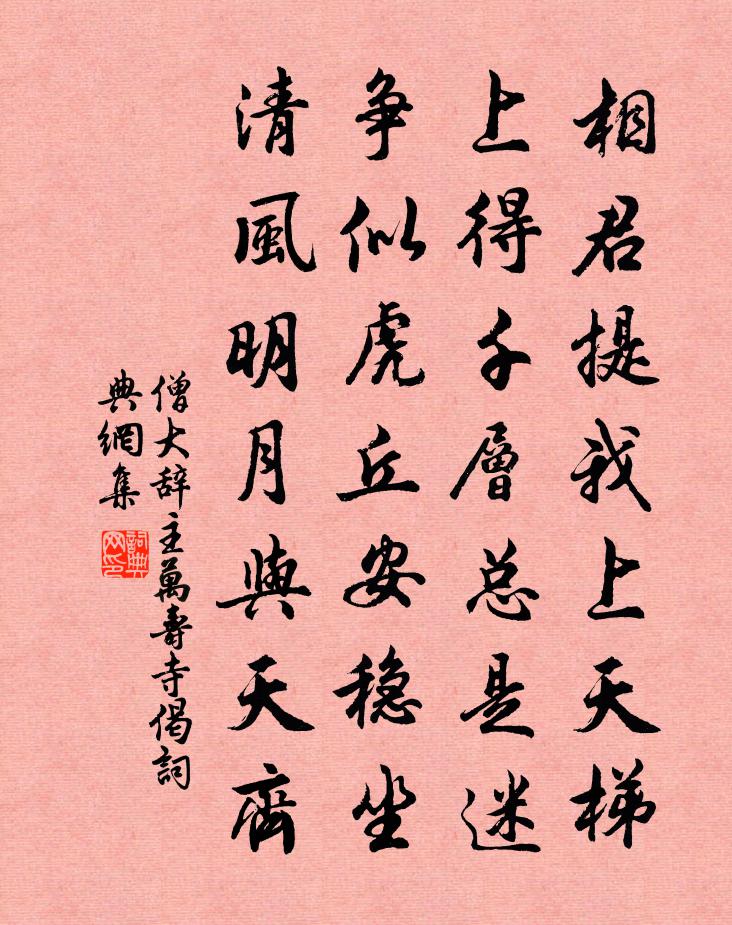 相君提我上天梯
上得千層总是迷
争似虎丘安稳坐
清風明月與天齊
僧大辞主萬壽寺偈詞
典網集
詞典网印